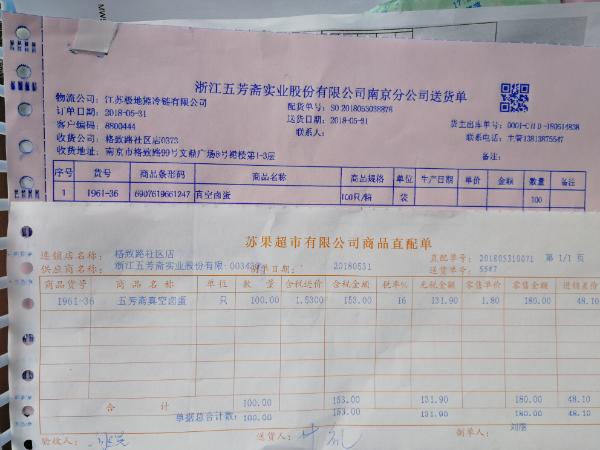 浙江五芳斋实业股份有限公司南京分公司送货单
物流公司: 江苏极地熊冷链有限公司
配货单号: SO 2018055038876
订单日期: 2018-05-31
送货日期: 2018-05-31
货主出库单号:
客户编码: 8800444
联系人:
联系电话: 主管13813875547
收货公司: 格致路社区店0373
收货地址: 南京市格致路99号文鼎广场8号裙楼第1-3层
备注:
序号 货号 商品条形码 商品名称 商品规格 单位 生产日期 单价 金额 数量 备注
1 1961-36 6907619661247 真空卤蛋 100只/箱 袋 100
苏果超市有限公司商品直配单
连锁店名称: 格致路社区店
直配单号: 201805310071 第 1/1 页
供应商名称: 浙江五芳斋实业股份有限 制单日期: 20180531
送货单号:
商品货号 商品名称 单位 数量 含税进价 含税金额 税率% 无税金额 零售单价 零售金额 进销差价
1961-36 五芳斋真空卤蛋 只 100.00 1.5300 153.00 16 131.90 1.80 180.00 48.10
合计 100.00 153.00 131.90 180.00 48.10
单据总合计数: 100.00 153.00 131.90 180.00 48.10
验收人: 送货人: 制单人: